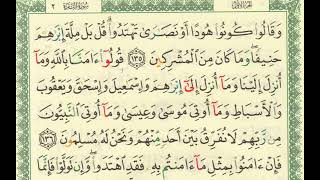 وَقَالُوا۟ كُونُوا۟ هُودًا أَوْ نَصَـٰرَىٰ تَهْتَدُوا۟ ۗ قُلْ بَلْ مِلَّةَ إِبْرَٰهِـۧمَ
حَنِيفًا ۖ وَمَا كَانَ مِنَ ٱلْمُشْرِكِينَ ﴿١٣٥﴾ قُولُوٓا۟ ءَامَنَّا بِٱللَّهِ وَمَآ
أُنزِلَ إِلَيْنَا وَمَآ أُنزِلَ إِلَىٰٓ إِبْرَٰهِـۧمَ وَإِسْمَـٰعِيلَ وَإِسْحَـٰقَ وَيَعْقُوبَ
وَٱلْأَسْبَاطِ وَمَآ أُوتِىَ مُوسَىٰ وَعِيسَىٰ وَمَآ أُوتِىَ ٱلنَّبِيُّونَ
مِن رَّبِّهِمْ لَا نُفَرِّقُ بَيْنَ أَحَدٍ مِّنْهُمْ وَنَحْنُ لَهُۥ مُسْلِمُونَ ﴿١٣٦﴾
فَإِنْ ءَامَنُوا۟ بِمِثْلِ مَآ ءَامَنتُم بِهِۦ فَقَدِ ٱهْتَدَوا۟ ۖ وَّإِن تَوَلَّوْا۟ فَإِنَّمَا